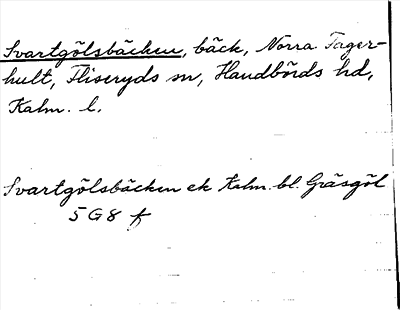 Svartgölsbäcken, bäck, Norra Tager-
hult, Fliseryds sn, Handbörds hd,
Kalm. l.
Svartgölsbäcken ek Kalm. bl. Gräsgöl
5 G 8 f